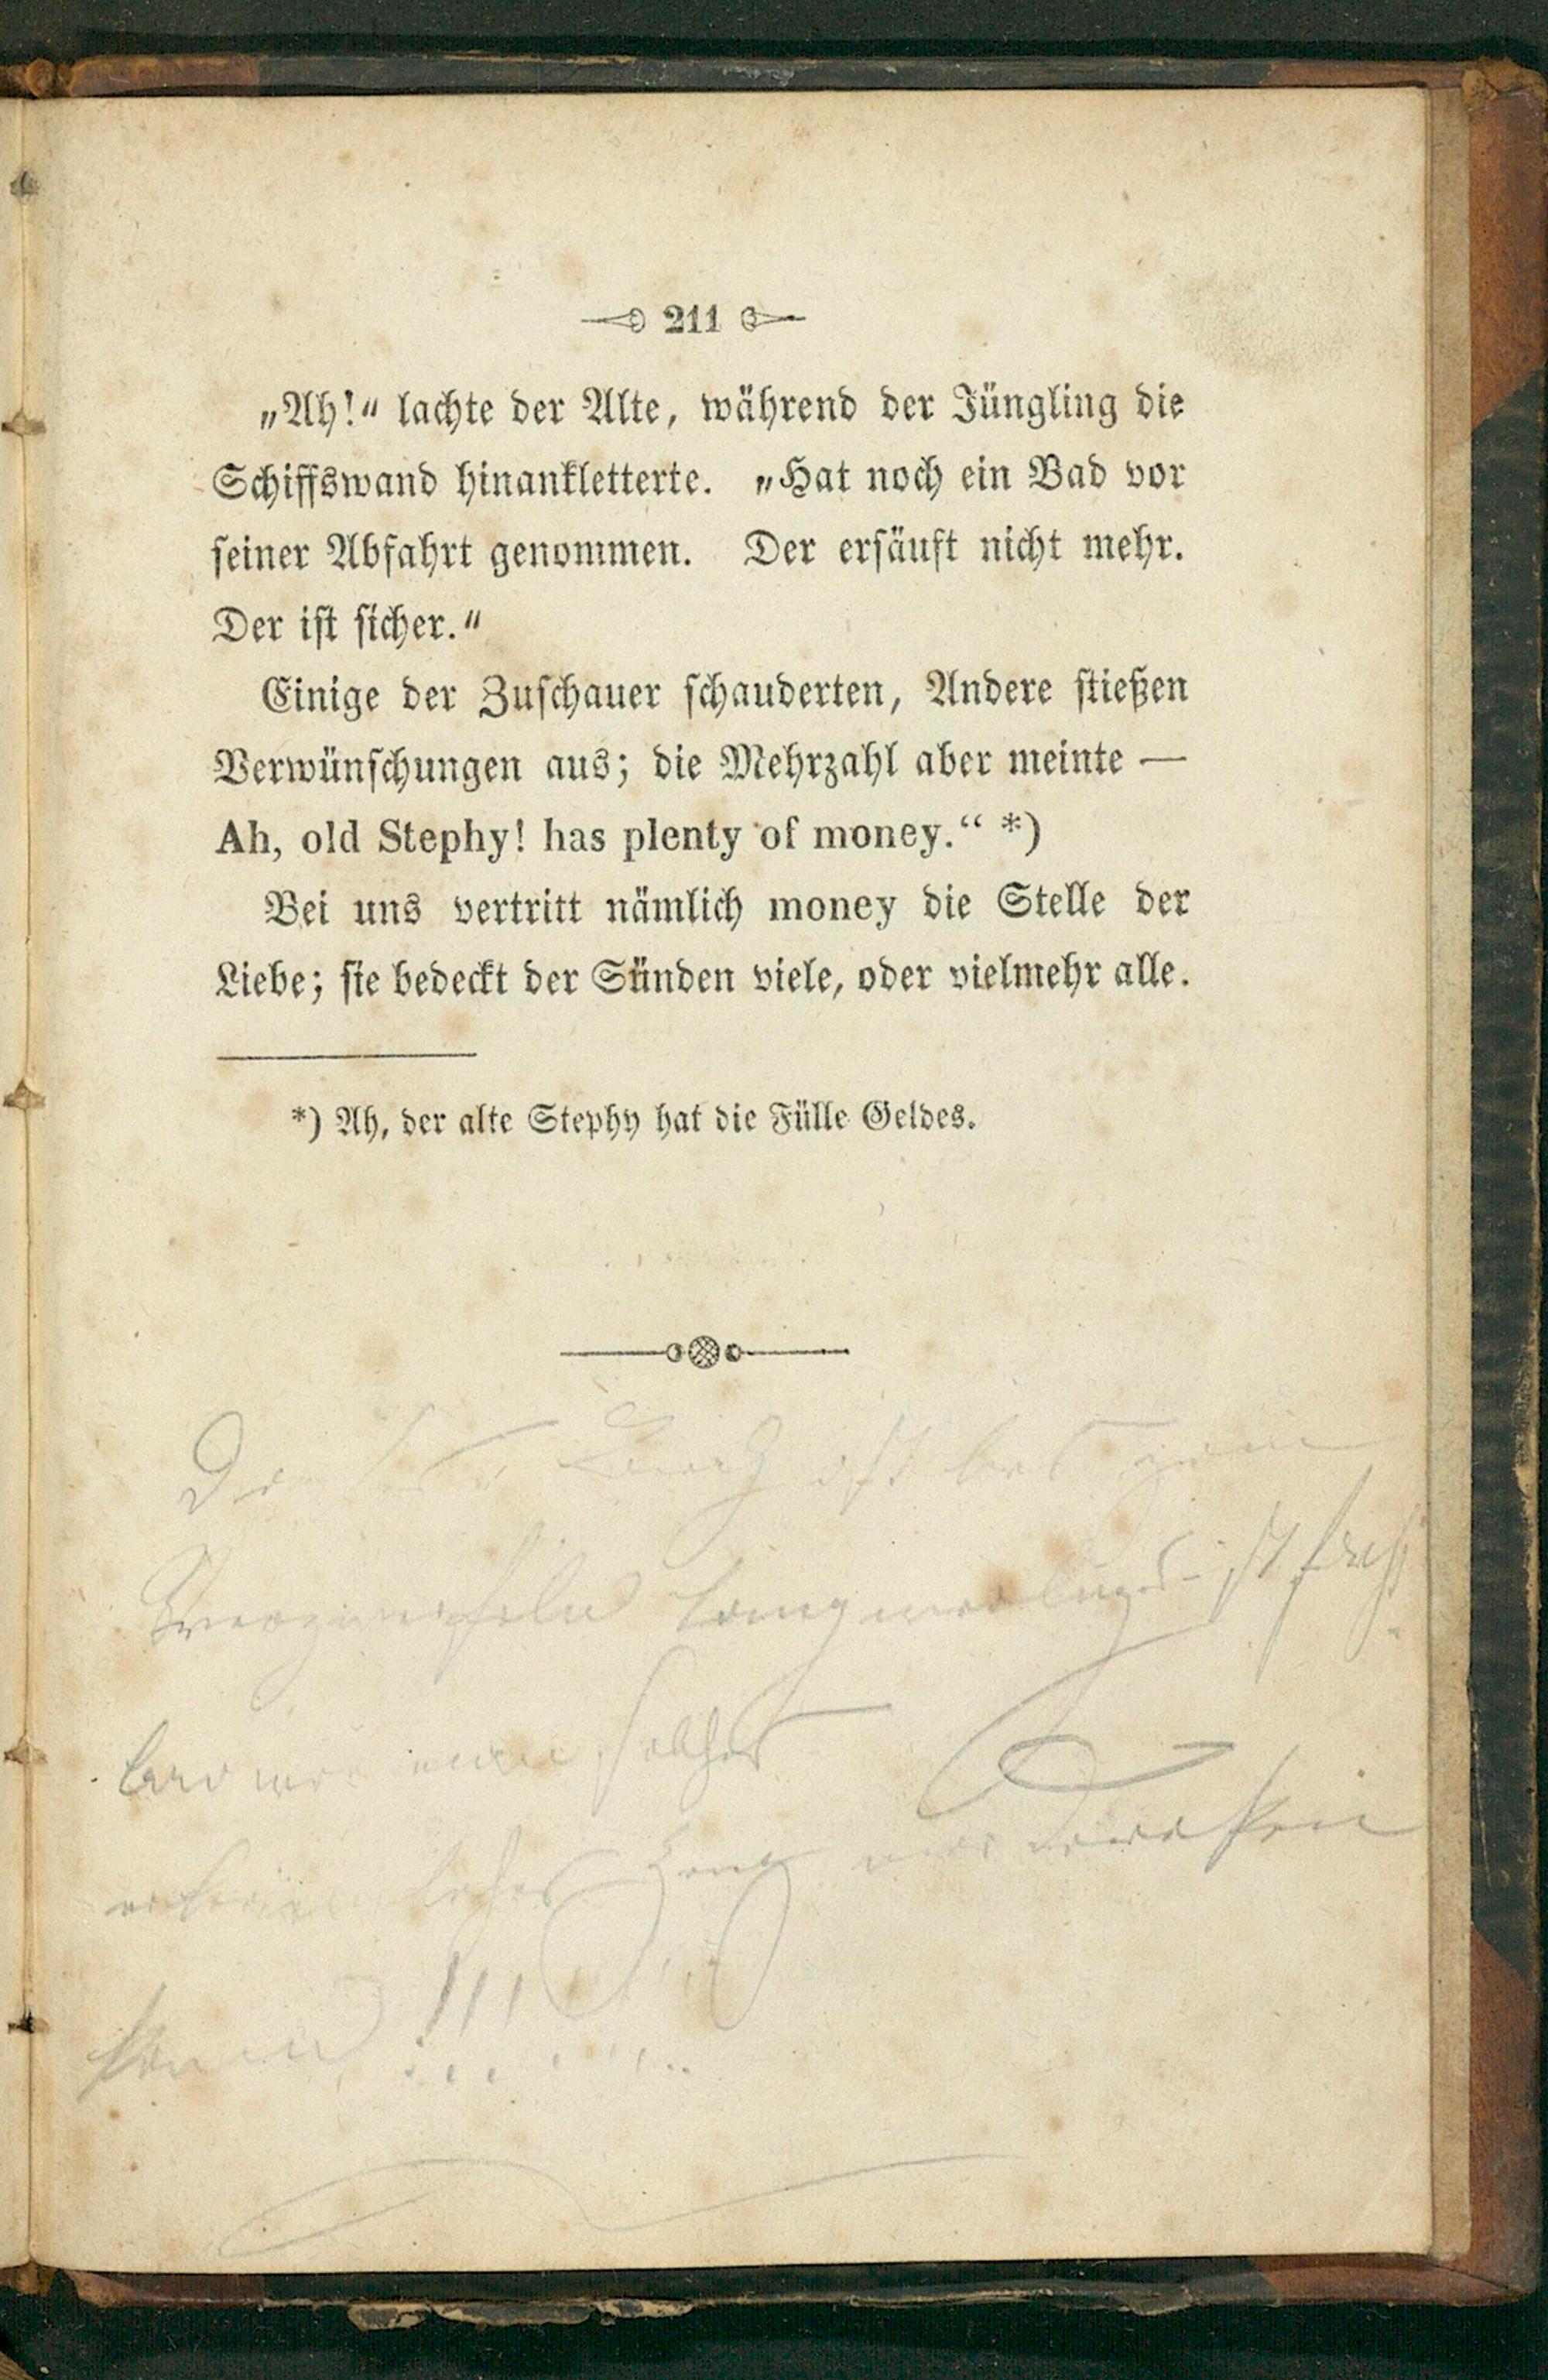 211
„Ah!“ lachte der Alte, während der Jüngling die
Schiffswand hinankletterte. „Hat noch ein Bad vor
seiner Abfahrt genommen. Der ersäuft nicht mehr.
Der ist sicher.“
Einige der Zuschauer schauderten, Andere stießen
Verwünschungen aus; die Mehrzahl aber meinte —
Ah, old Stephy! has plenty of money.“ *)
Bei uns vertritt nämlich money die Stelle der
Liebe; sie bedeckt der Sünden viele, oder vielmehr alle.
*) Ah, der alte Stephy hat die Fülle Geldes.
ist zum
Verzweifeln langweilig
wie man solches
Zeug
kann !!!